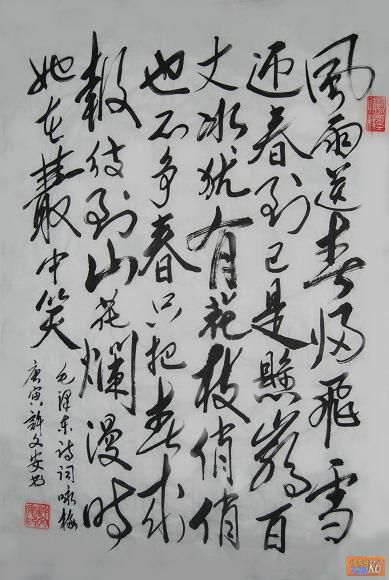 風雨送春归飛雪
迎春到已是懸崖百
丈冰犹有花枝俏俏
也不争春只把春来
報待到山花爛漫時
她在叢中笑
毛澤东詩詞咏梅
庚寅許文安书
K6